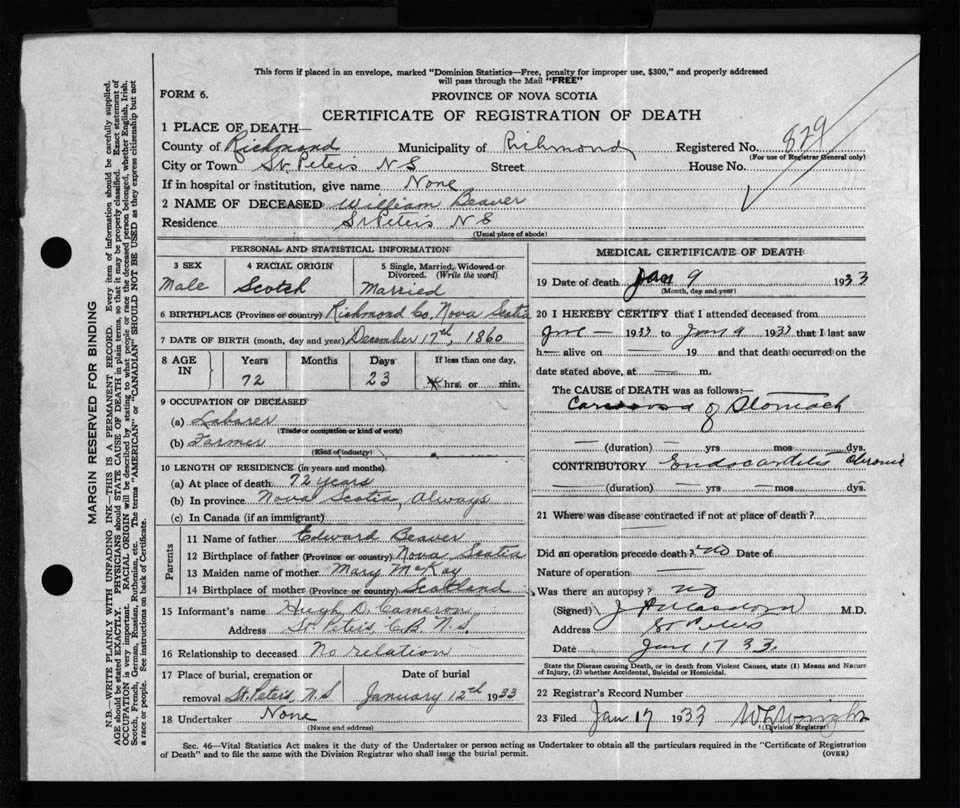 This form if placed in an envelope, marked "Dominion Statistics—Free, penalty for improper use, $300," and properly addressed
will pass through the Mail "FREE"
FORM 6.
PROVINCE OF NOVA SCOTIA
CERTIFICATE OF REGISTRATION OF DEATH
1 PLACE OF DEATH—
County of Richmond Municipality of Richmond Registered No. 829
(For use of Registrar General only)
City or Town St. Peters N S Street House No.
If in hospital or institution, give name None
2 NAME OF DECEASED William Beaver
Residence St Peters N S
(Usual place of abode)
PERSONAL AND STATISTICAL INFORMATION
3 SEX 4 RACIAL ORIGIN 5 Single, Married, Widowed or
Divorced. (Write the word)
Male Scotch Married
6 BIRTHPLACE (Province or country) Richmond Co. Nova Scotia
7 DATE OF BIRTH (month, day and year) December 17th, 1860
8 AGE IN Years Months Days If less than one day,
72 23 hrs. or min.
9 OCCUPATION OF DECEASED
(a) Labarer
(Trade or occupation or kind of work)
(b) Farmer
(Kind of industry)
10 LENGTH OF RESIDENCE (in years and months)
(a) At place of death 72 years
(b) In province Nova Scotia, Always
(c) In Canada (if an immigrant)
Parents
11 Name of father Edward Beaver
12 Birthplace of father (Province or country) Nova Scotia
13 Maiden name of mother Mary McKay
14 Birthplace of mother (Province or country) Scotland
15 Informant's name Hugh D. Cameron
Address St. Peters, C.B. N.S.
16 Relationship to deceased No relation
17 Place of burial, cremation or
removal St. Peters, N.S January 12th 1933
18 Undertaker None
(Name and address)
MEDICAL CERTIFICATE OF DEATH
19 Date of death Jan 9 1933
(Month, day and year)
20 I HEREBY CERTIFY that I attended deceased from
— 1933 to Jan 9 1933 that I last saw
h— alive on — 19 and that death occurred on the
date stated above, at — m.
The CAUSE of DEATH was as follows:—
Carcinoma of Stomach
— (duration) — yrs mos dys.
CONTRIBUTORY Endocarditis Chronic
— (duration) — yrs — mos dys.
21 Where was disease contracted if not at place of death?
Did an operation precede death? No Date of
Nature of operation —
Was there an autopsy? no
(Signed) M.D.
Address St Peters
Date Jan 17 33.
State the Disease causing Death, or in death from Violent Causes, state (1) Means and Nature
of Injury, (2) whether Accidental, Suicidal or Homicidal.
22 Registrar's Record Number
23 Filed Jan 17 1933
(Division Registrar)
Sec. 46—Vital Statistics Act makes it the duty of the Undertaker or person acting as Undertaker to obtain all the particulars required in the "Certificate of Registration
of Death" and to file the same with the Division Registrar who shall issue the burial permit.
(OVER)
MARGIN RESERVED FOR BINDING
N.B.—WRITE PLAINLY WITH UNFADING INK—THIS IS A PERMANENT RECORD. Every item of information should be carefully supplied.
AGE should be stated EXACTLY. PHYSICIANS should STATE CAUSE OF DEATH in plain terms, so that it may be properly classified. Exact statement of
OCCUPATION is very important. RACIAL ORIGIN will be described by stating to what people or race the deceased person belonged, whether English, Irish,
Scotch, French, German, Russian, Ruthenian, etc. The terms "AMERICAN" or "CANADIAN" SHOULD NOT BE USED as they express citizenship but not
a race or people. See instructions on back of Certificate.